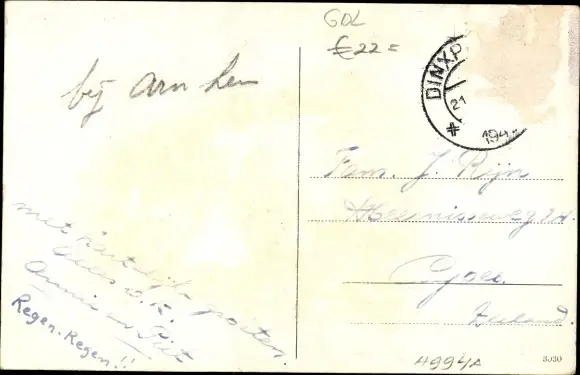 GDL
€ 22 =
DINXP
21
194
bij Arnhem
Fam. J. Rijn
Goes.
Zeeland.
met hartelijke groeten.
Alles o.k.
Annie en Piet
Regen. Regen!!
4994A
3030